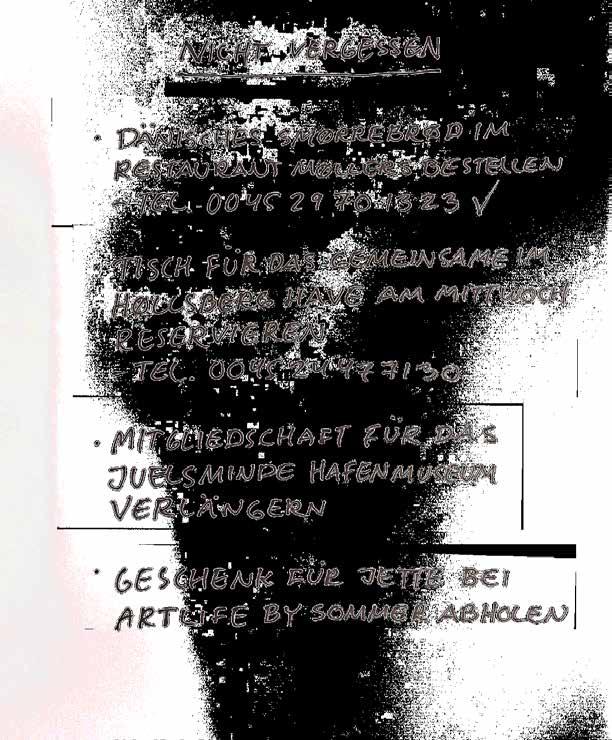 NICHT VERGESSEN
• DÄNISCHES SMØRREBRØD IM
RESTAURANT MØLLERS BESTELLEN
- TEL. 0045 29 70 13 23 ✓
TISCH FÜR DAS GEMEINSAME IM
HØLLSBERG HAVE AM MITTWOCH
RESERVIEREN
- TEL. 0045 24 47 71 30
• MITGLIEDSCHAFT FÜR DAS
JUELSMINDE HAFENMUSEUM
VERLÄNGERN
• GESCHENK FÜR JETTE BEI
ARTLIFE BY SOMMER ABHOLEN